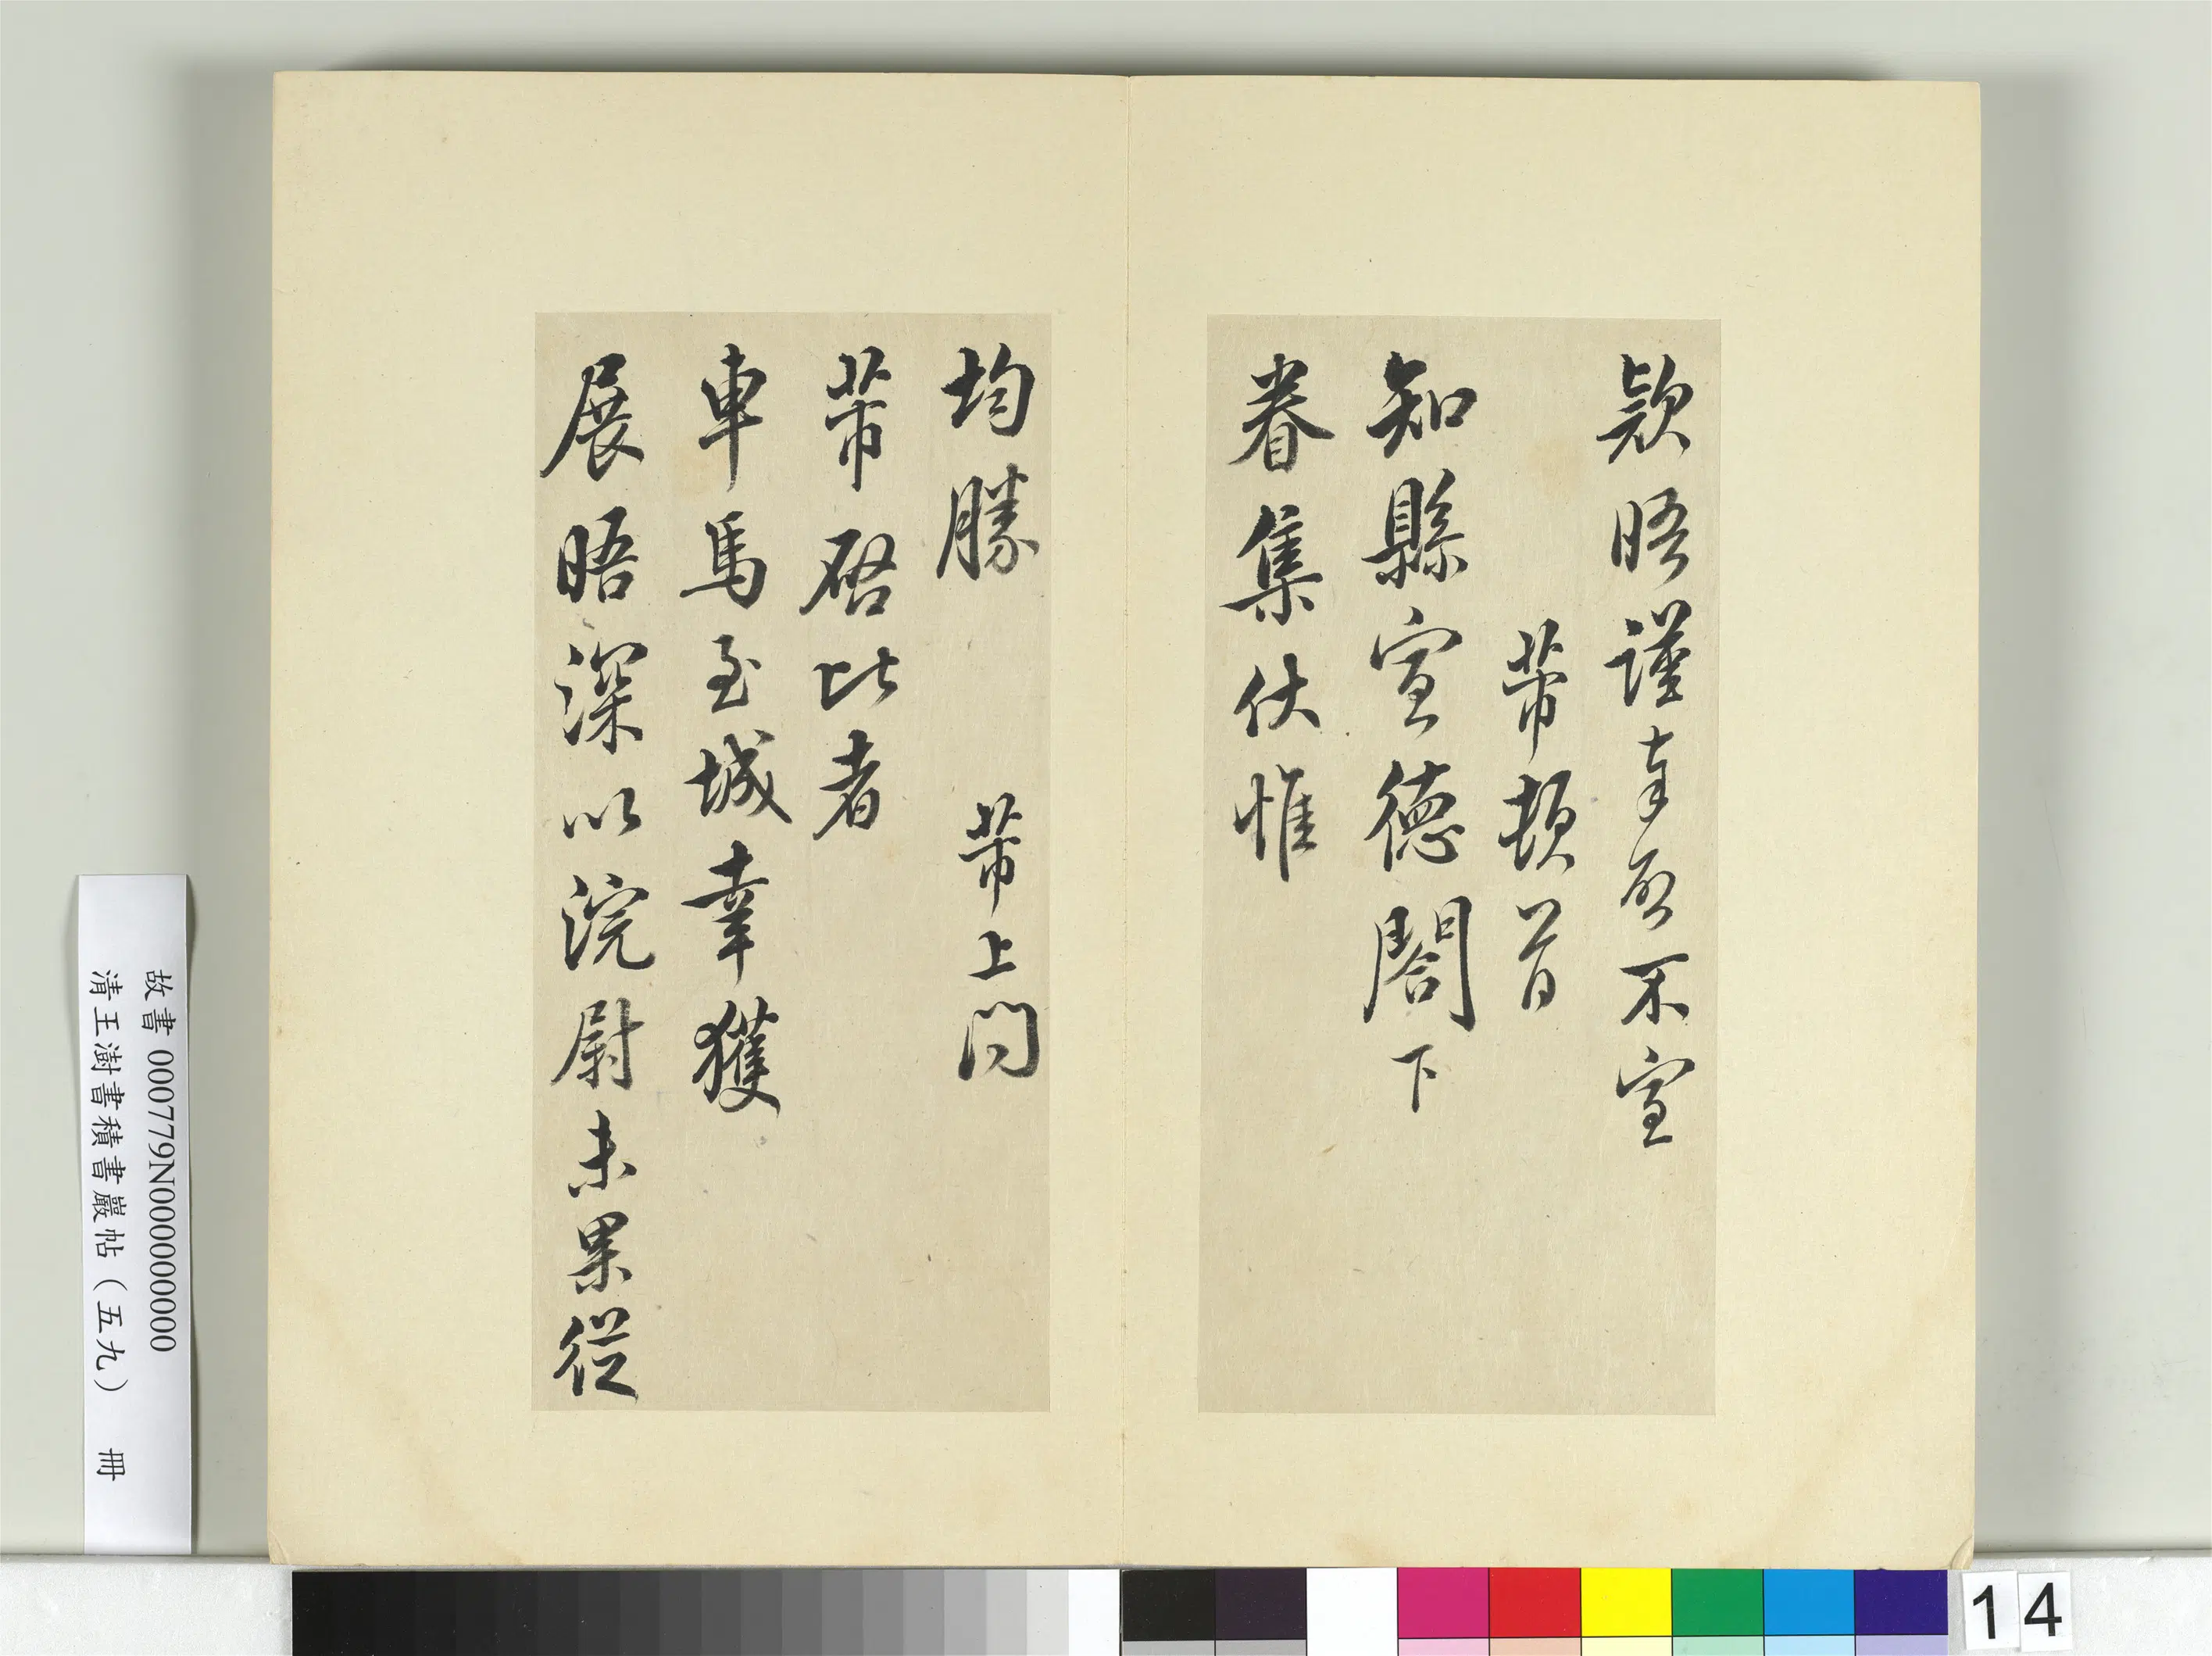 款晤謹奉啓不宣
芾頓首
知縣宣德閣下
眷集伏惟
均勝 芾上問
芾啓比者
車馬至城幸獲
展晤深以浣尉未果從
故書 000779N000000000
清王澍書積書巖帖（五九） 冊
14